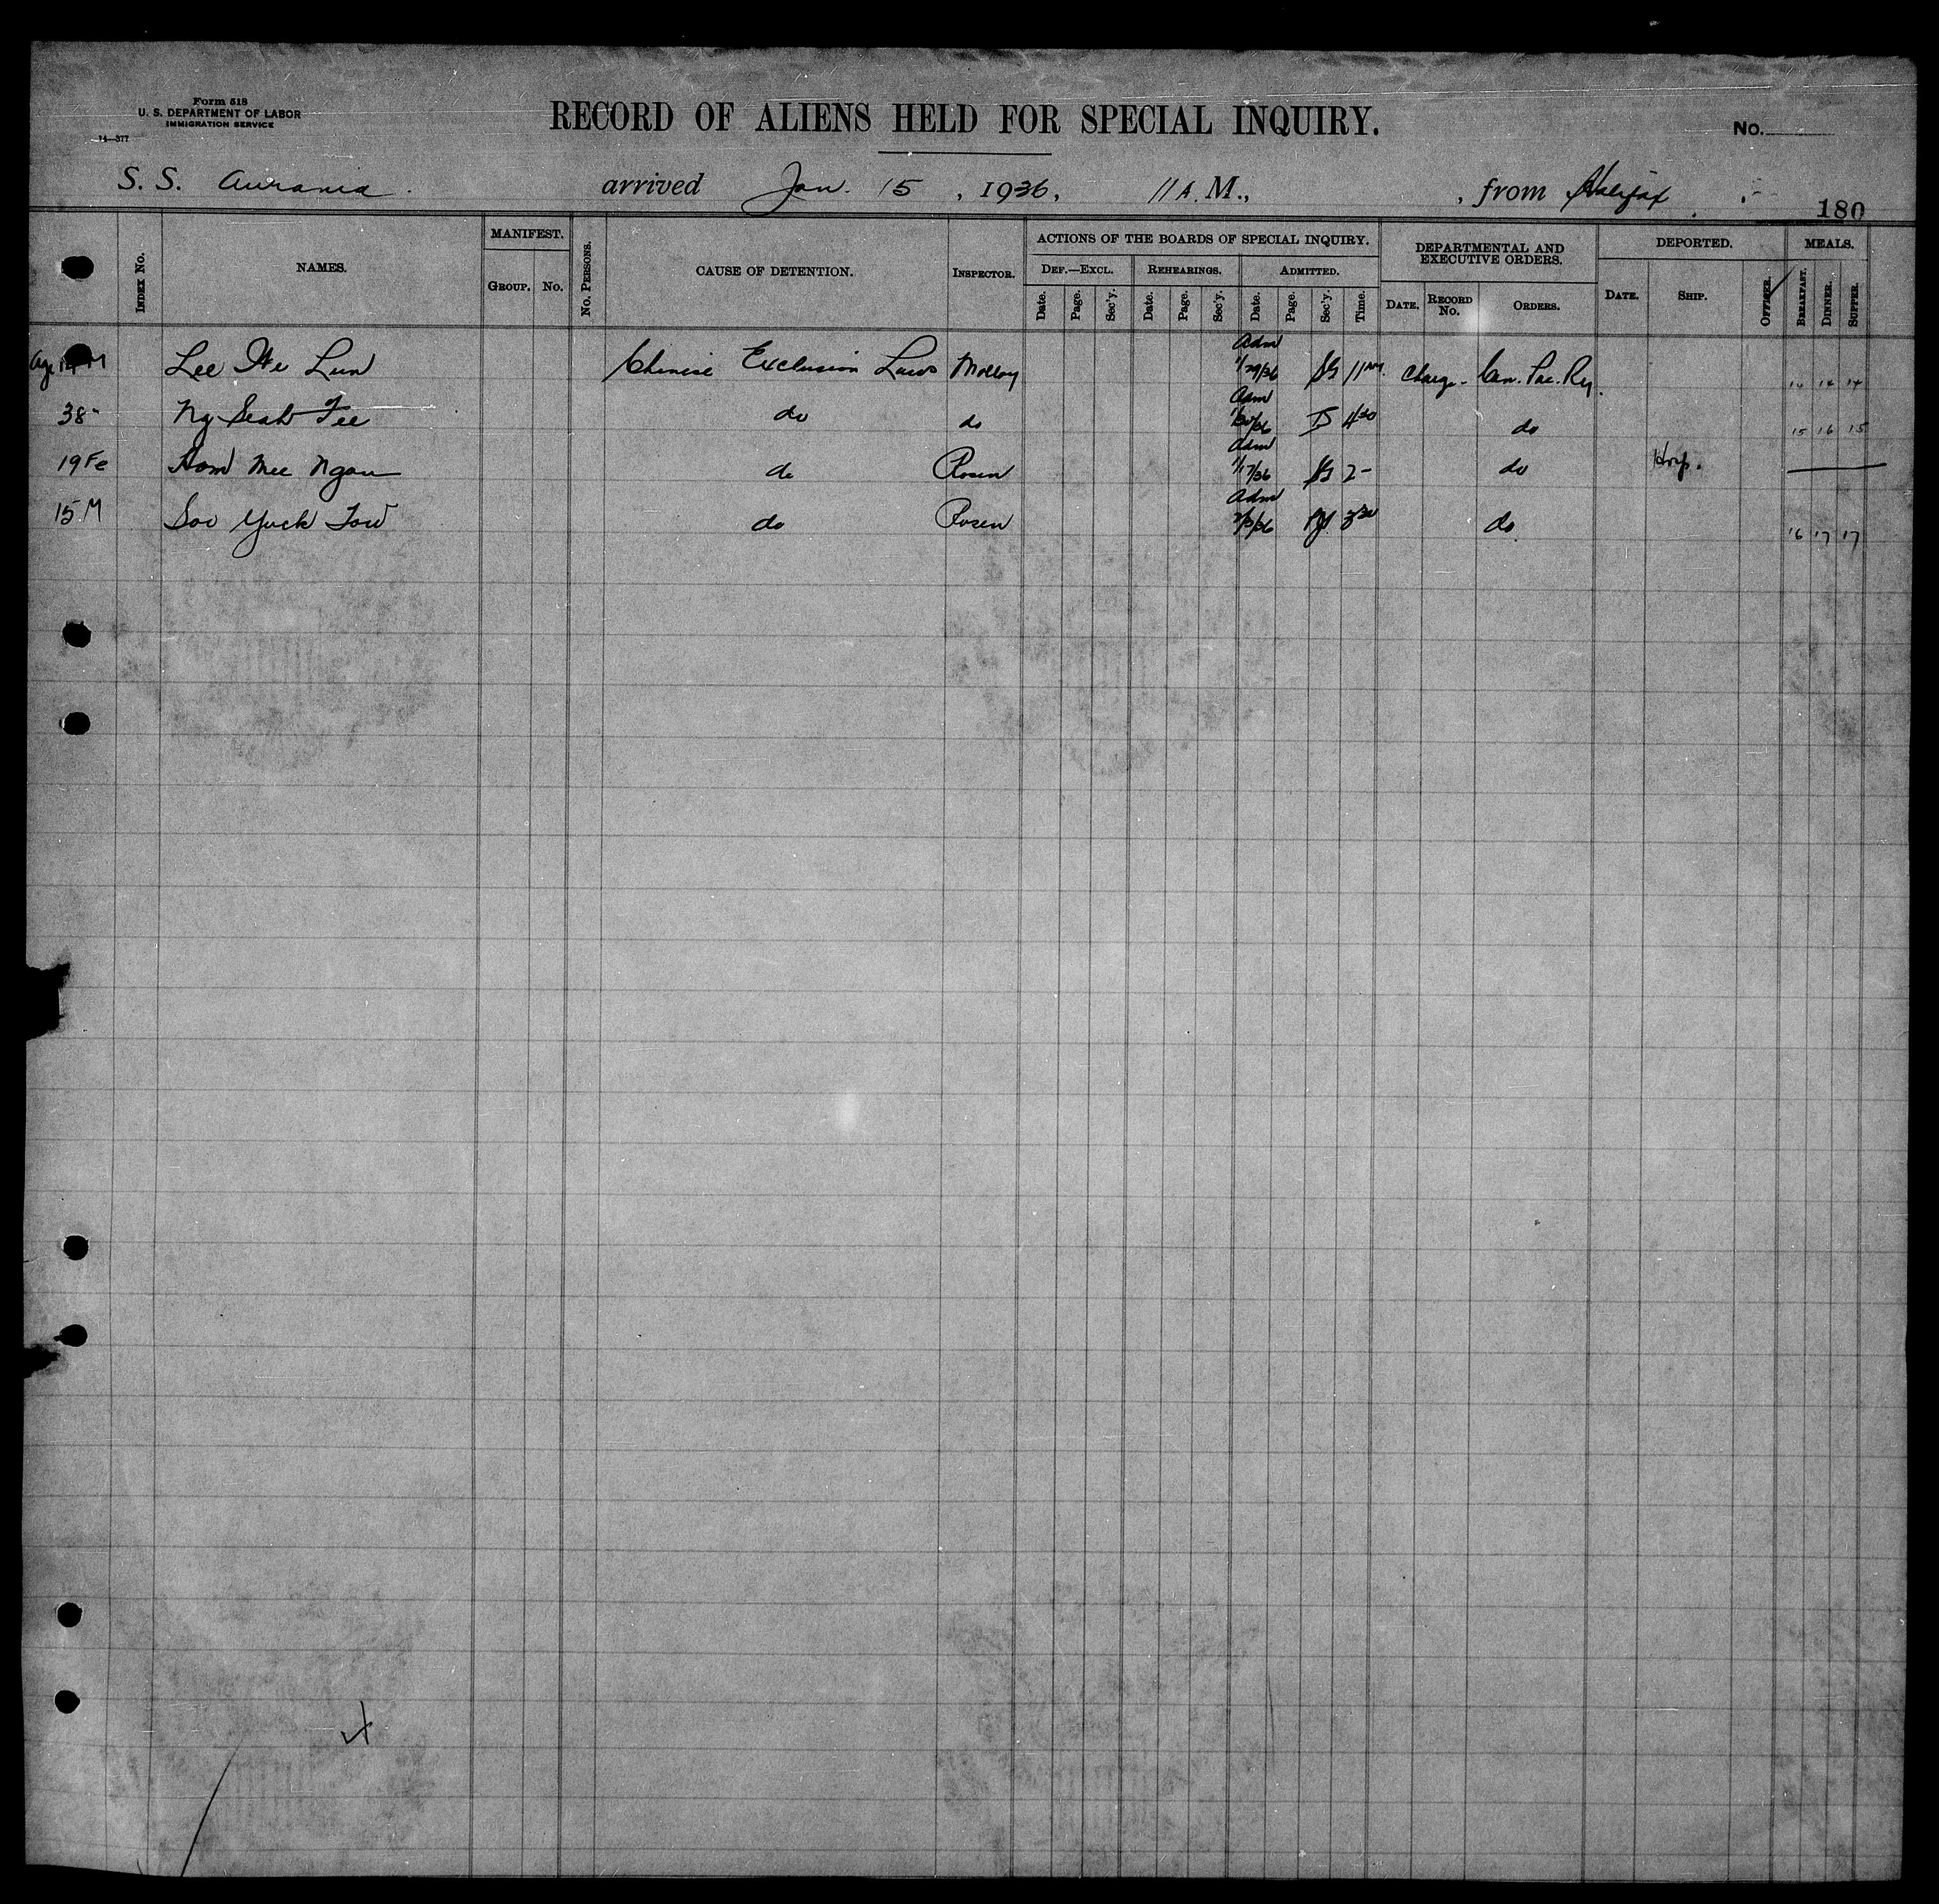 Form 518
U. S. DEPARTMENT OF LABOR
IMMIGRATION SERVICE
14—377
RECORD OF ALIENS HELD FOR SPECIAL INQUIRY.
No.
S. S. Aurania. arrived Jan. 15, 1936, 11 A. M., , from Halifax
180
INDEX No.
NAMES.
MANIFEST.
GROUP. No.
No. PERSONS.
CAUSE OF DETENTION.
INSPECTOR.
ACTIONS OF THE BOARDS OF SPECIAL INQUIRY.
DEF.—EXCL. REHEARINGS. ADMITTED.
Date. Page. Sec'y. Date. Page. Sec'y. Date. Page. Sec'y. Time.
DEPARTMENTAL AND EXECUTIVE ORDERS.
DATE. RECORD No. ORDERS.
DEPORTED.
DATE. SHIP. OFFICER.
MEALS.
BREAKFAST. DINNER. SUPPER.
Age 14 M Lee We Lun Chinese Exclusion Laws Molloy Adm 1/29/36 SG 11 Charge. Can. Pac. Ry. 14 14 14
38 " Ng Seah Fee do do Adm 1/30/36 IS 4 30 do 15 16 15
19 Fe Hom Mee Ngan do Rosen Adm 1/17/36 SG 2 – do Hosp.
15 M Soo Yuck Tow do Rosen Adm 2/3/36 3 30 do. 16 17 17